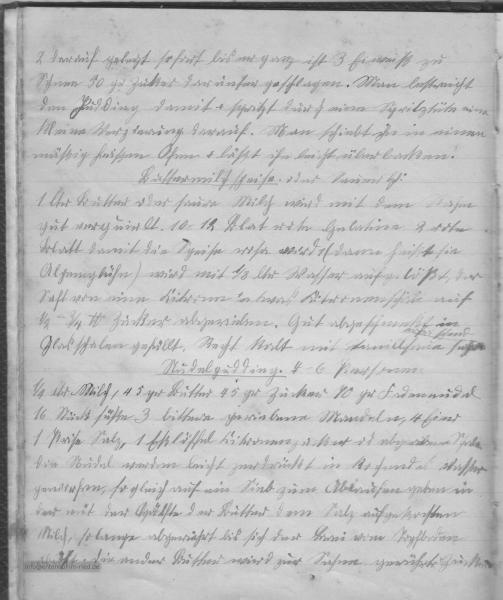 2 darauf gelegt so fort bis er ganz ist 3 Eiweiß zu
Schnee 50 gr Zucker darunter geschlagen. Man bestreicht
den Pudding damit & spritzt durch eine Spritztüte eine
kleine Verzierung darauf. Man schiebt ihn in einen
mäßig heißen Ofen & läßt ihn leicht überbacken.
Buttermilch speise. oder
1 Ltr Butter oder saure Milch wird mit dem Rahm
gut verquirlt. 10-12 Blat rote Gelatine 2 rote
Blatt damit die Speise rosa wird (dann heißt sie
) wird mit 1/8 Ltr Wasser aufgelößt, der
Saft von einer Zitrone etwas Zitronenschale auf
1/2 - 3/4 ℔ Zucker abgerieben. Gut abgeschmeckt in
Glasschalen gefüllt. Recht kalt mit
Nudelpudding. 4-6 Personen
1/4 Ltr Milch, 45 gr Butter 45 gr Zucker 80 gr Fadennudel
16 Stück süße 3 bittere geriebene Mandeln, 4 Eier
1 Prise Salz, 1 Eßlöffel Zitronenzucker
die Nudel werden leicht zerdrückt in kochendes Wasser
geworfen, sogleich auf ein Sieb zum Ablaufen geben in
der mit der Hälfte der Butter dem Salz aufgekochten
Milch, so lange abgerührt bis sich der Brei vom Topfboden
die andere Butter wird zur Sahne gerührt Zucker